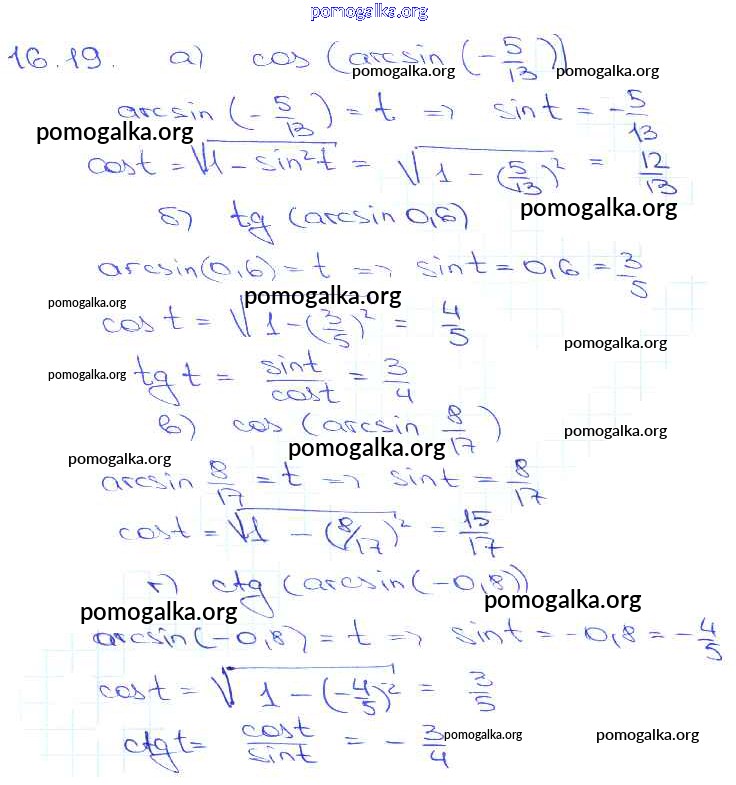 pomogalka.org
16.19. а) cos (arcsin (-5/13))
pomogalka.org pomogalka.org
arcsin (-5/13) = t => sin t = -5/13
pomogalka.org
cos t = √(1 - sin²t) = √(1 - (5/13)²) = 12/13
б) tg (arcsin 0,6)
pomogalka.org
arcsin(0,6) = t => sin t = 0,6 = 3/5
pomogalka.org pomogalka.org
cos t = √(1 - (3/5)²) = 4/5
pomogalka.org
pomogalka.org
tg t = sin t/cos t = 3/4
в) cos (arcsin 8/17)
pomogalka.org
pomogalka.org
pomogalka.org
arcsin 8/17 = t => sin t = 8/17
cos t = √(1 - (8/17)²) = 15/17
г) ctg (arcsin(-0,8))
pomogalka.org pomogalka.org
arcsin(-0,8) = t => sin t = -0,8 = -4/5
cos t = √(1 - (-4/5)²) = 3/5
ctg t = cos t/sin t = - 3/4
pomogalka.org pomogalka.org